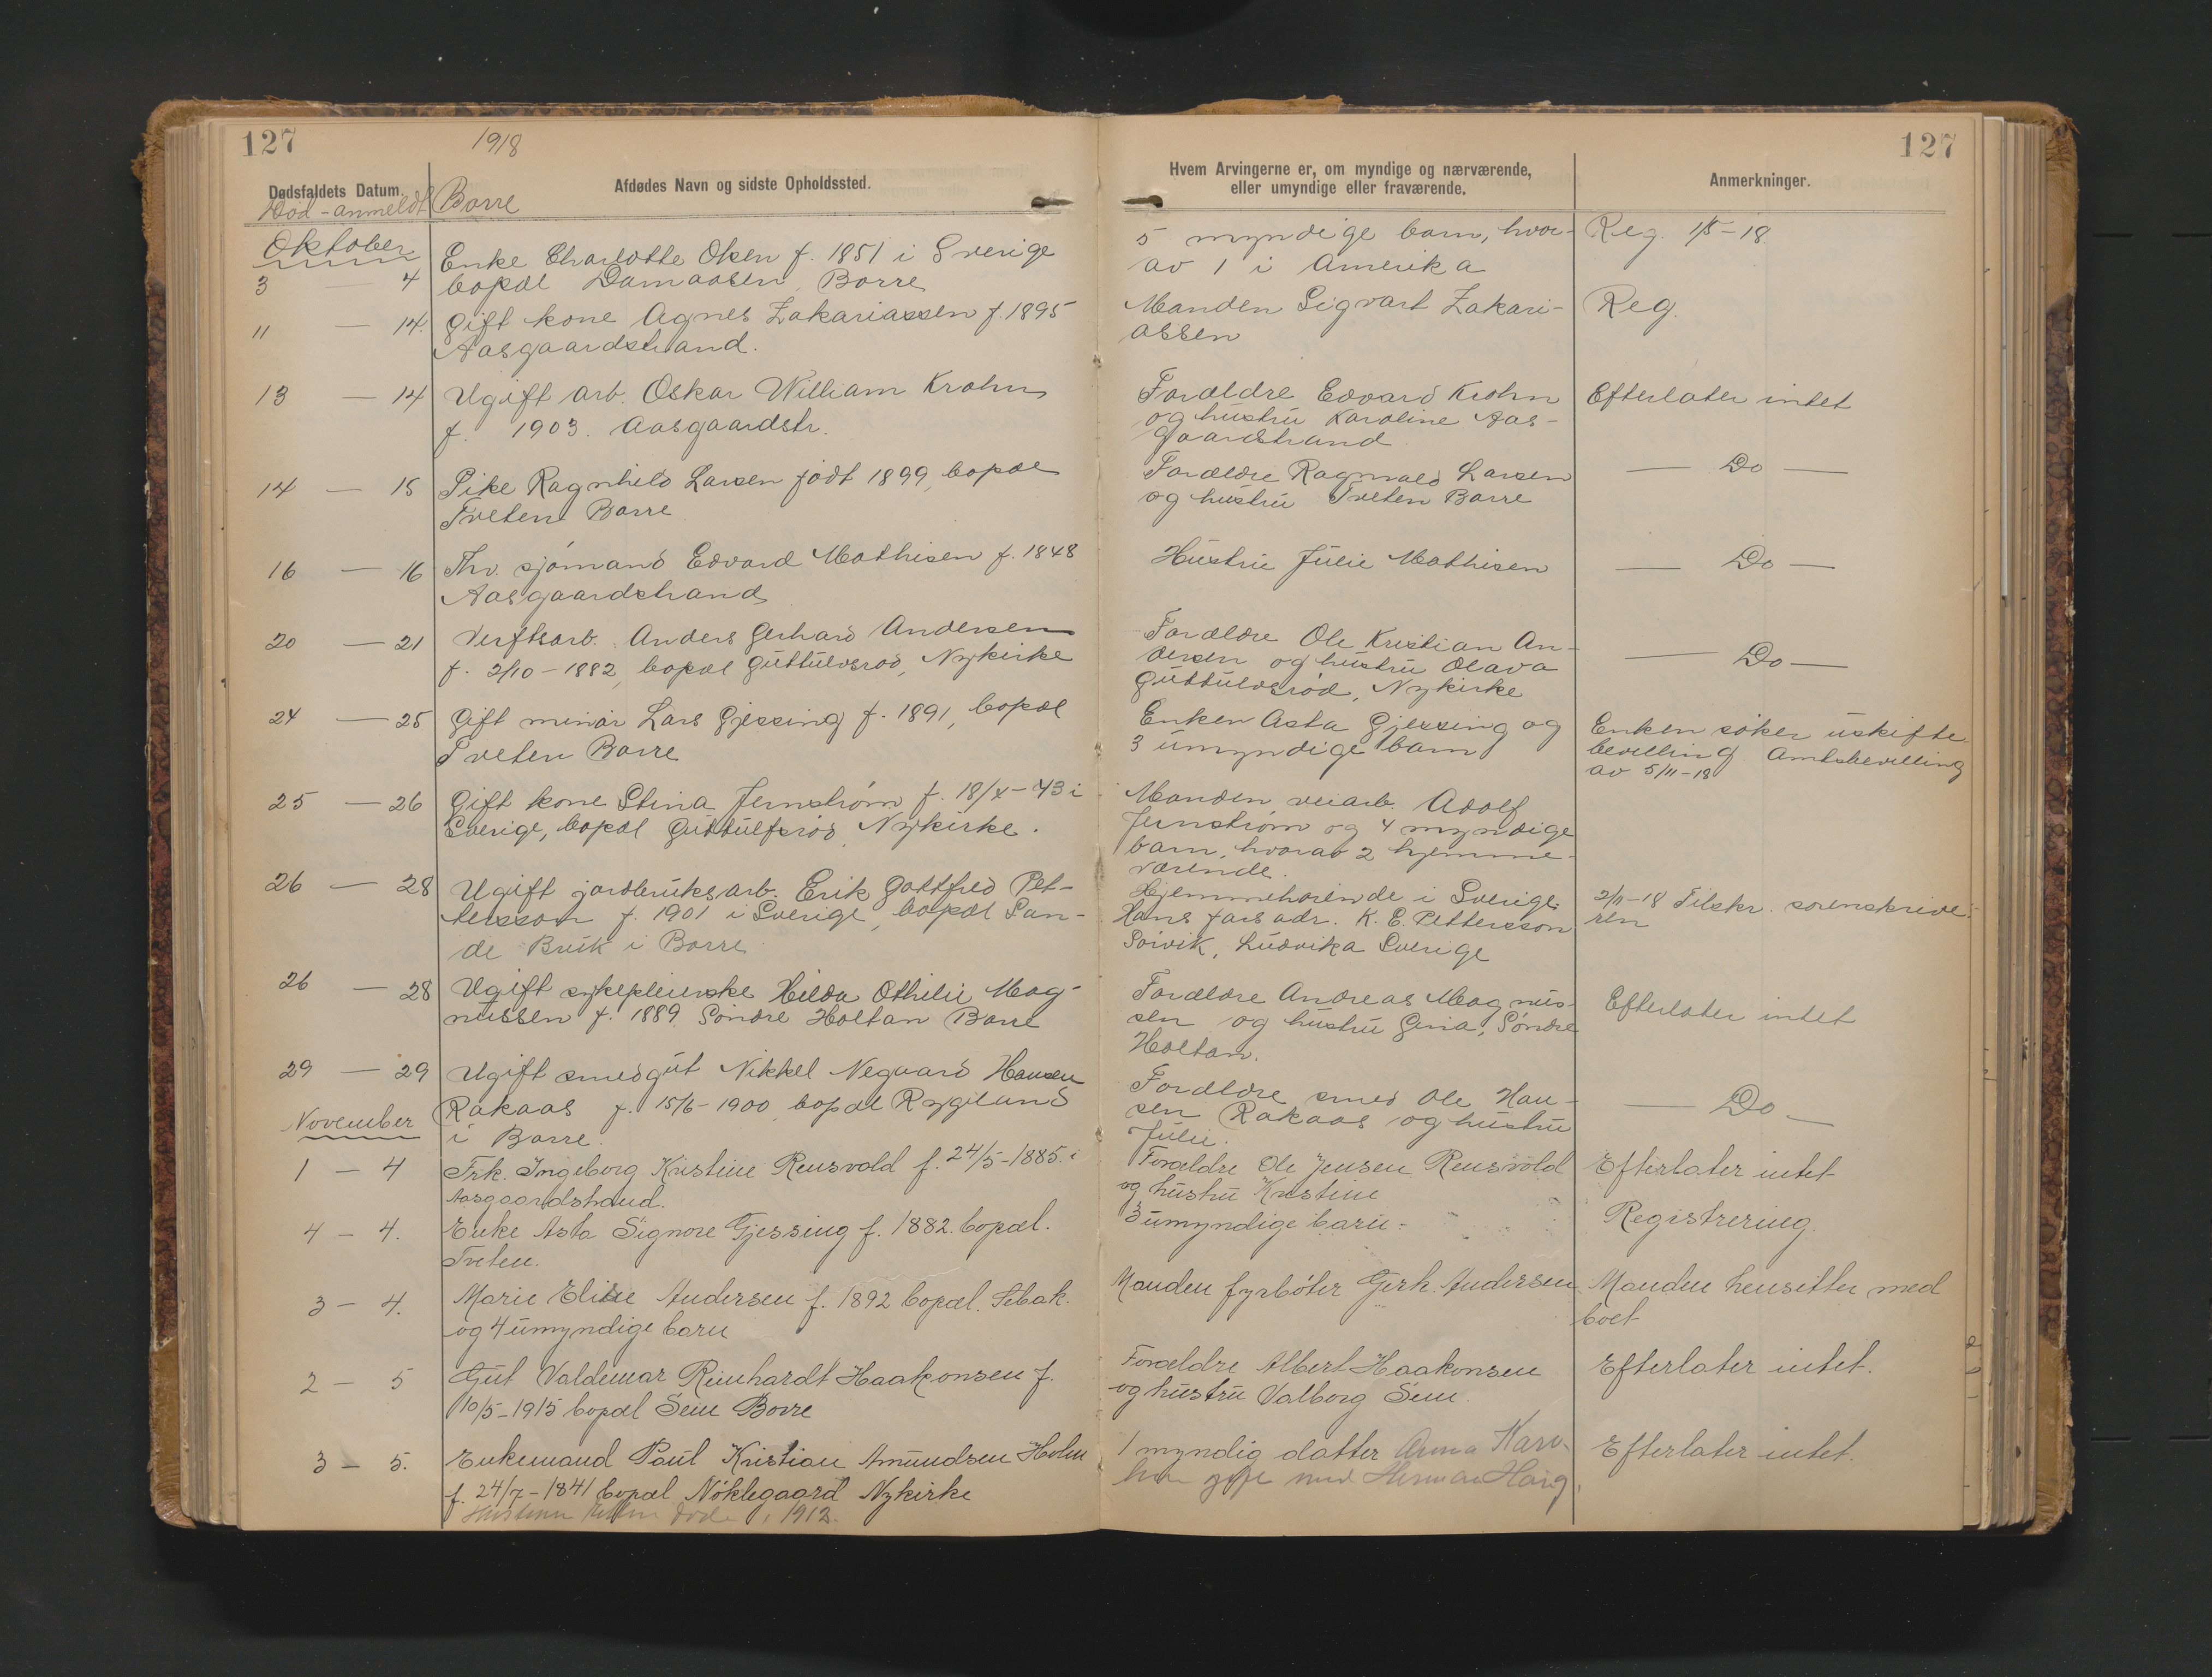 127
1918
Dødsfaldets Datum.
Afdødes Navn og sidste Opholdssted.
Død - anmeldt
Borre
Oktober
3 — 4
Enke Charlotte Olsen f. 1851 i Sverige
bopæl Damaasen, Borre
11 — 14.
Gift kone Agnes Zakariassen f. 1895
Aasgaardstrand.
13 — 14
Ugift arb. Oskar William Krohn
f. 1903. Aasgaardstr.
14 — 15
Pike Ragnhild Larsen født 1899, bopæl
Tveten Borre
16 — 16
Fhv. sjømand Edvard Mathisen f. 1848
Aasgaardstrand
20 — 21
Verftsarb. Anders Gerhard Andersen
f. 2/10 - 1882, bopæl Guttulvsrød, Nykirke
24 — 25
Gift minør Lars Gjessing f. 1891, bopæl
Tveten Borre
25 — 26
Gift kone Stina Jernstrøm f. 18/x - 43 i
Sverige, bopæl Guttulfsrød, Nykirke.
26 — 28
Ugift jordbruksarb. Erik Gottfred Pet-
tersson f. 1901 i Sverige, bopæl San-
de Bruk i Borre
26 — 28
Ugift sykepleierske Hilda Othilie Mag-
nussen f. 1889. Søndre Holtan Borre
29 — 29
Ugift smedgut Nikkel Neguard Hansen
Rakaas f. 15/6 - 1900, bopæl Rygland
i Borre.
November
1 — 4
Frk. Ingeborg Kristine Rensvold f. 24/5 - 1885. i
Aasgaardstrand.
4 — 4.
Enke Asta Signore Gjessing f. 1882. bopæl.
Tveten.
3 — 4.
Marie Eline Andersen f. 1892 bopæl.
og 4 umyndige barn
2 — 5
Gut Valdemar Reinhardt Haakonsen f.
10/5 - 1915 bopæl Sem Borre
3 — 5.
Enkemand Paul Kristian Amundsen Holm
f. 24/7 - 1841 bopæl Nøklegaard Nykirke
døde i 1912.
127
Hvem Arvingerne er, om myndige og nærværende,
eller umyndige eller fraværende.
Anmerkninger.
5 myndige barn, hvor-
av 1 i Amerika
Reg. 1/5 - 18.
Manden Sigvart Zakari-
assen
Reg.
Forældre Edvard Krohn
og hustru Karoline Aas-
gaardstrand
Efterlater intet
Forældre Ragnvald Larsen
og hustru Tveten Borre
— Do —
Hustru Julie Mathisen
— Do —
Forældre Ole Kristian An-
dersen og hustru Olava
Guttulvsrød, Nykirke
— Do —
Enken Asta Gjessing og
3 umyndige barn
Enken søker uskifte-
bevilling Amtsbevilling
av 5/11 - 18
Manden veiarb. Adolf
Jernstrøm og 4 myndige
barn, hvorav 2 hjemme-
værende.
Hjemmehørende i Sverige.
Hans fars adr. K. E. Pettersson
Soivik, Ludvika Sverige
2/11 - 18 Tilskr. sorenskrive-
ren
Forældre Andreas Magnus-
sen og hustru Gina, Søndre
Holtan.
Efterlater intet
Forældre smed Ole Han-
sen Rakaas og hustru
Julie.
— Do —
Forældre Ole Jensen Rensvold
og hustru Kristine
Efterlater intet
3 umyndige barn.
Registrering.
Manden fyrbøter Gerh. Andersen
Manden hensitter med
boet
Forældre Albert Haakonsen
og hustru Valborg Sem.
Efterlater intet.
1 myndig datter Anna
gift med Herman Haug.
Efterlater intet.